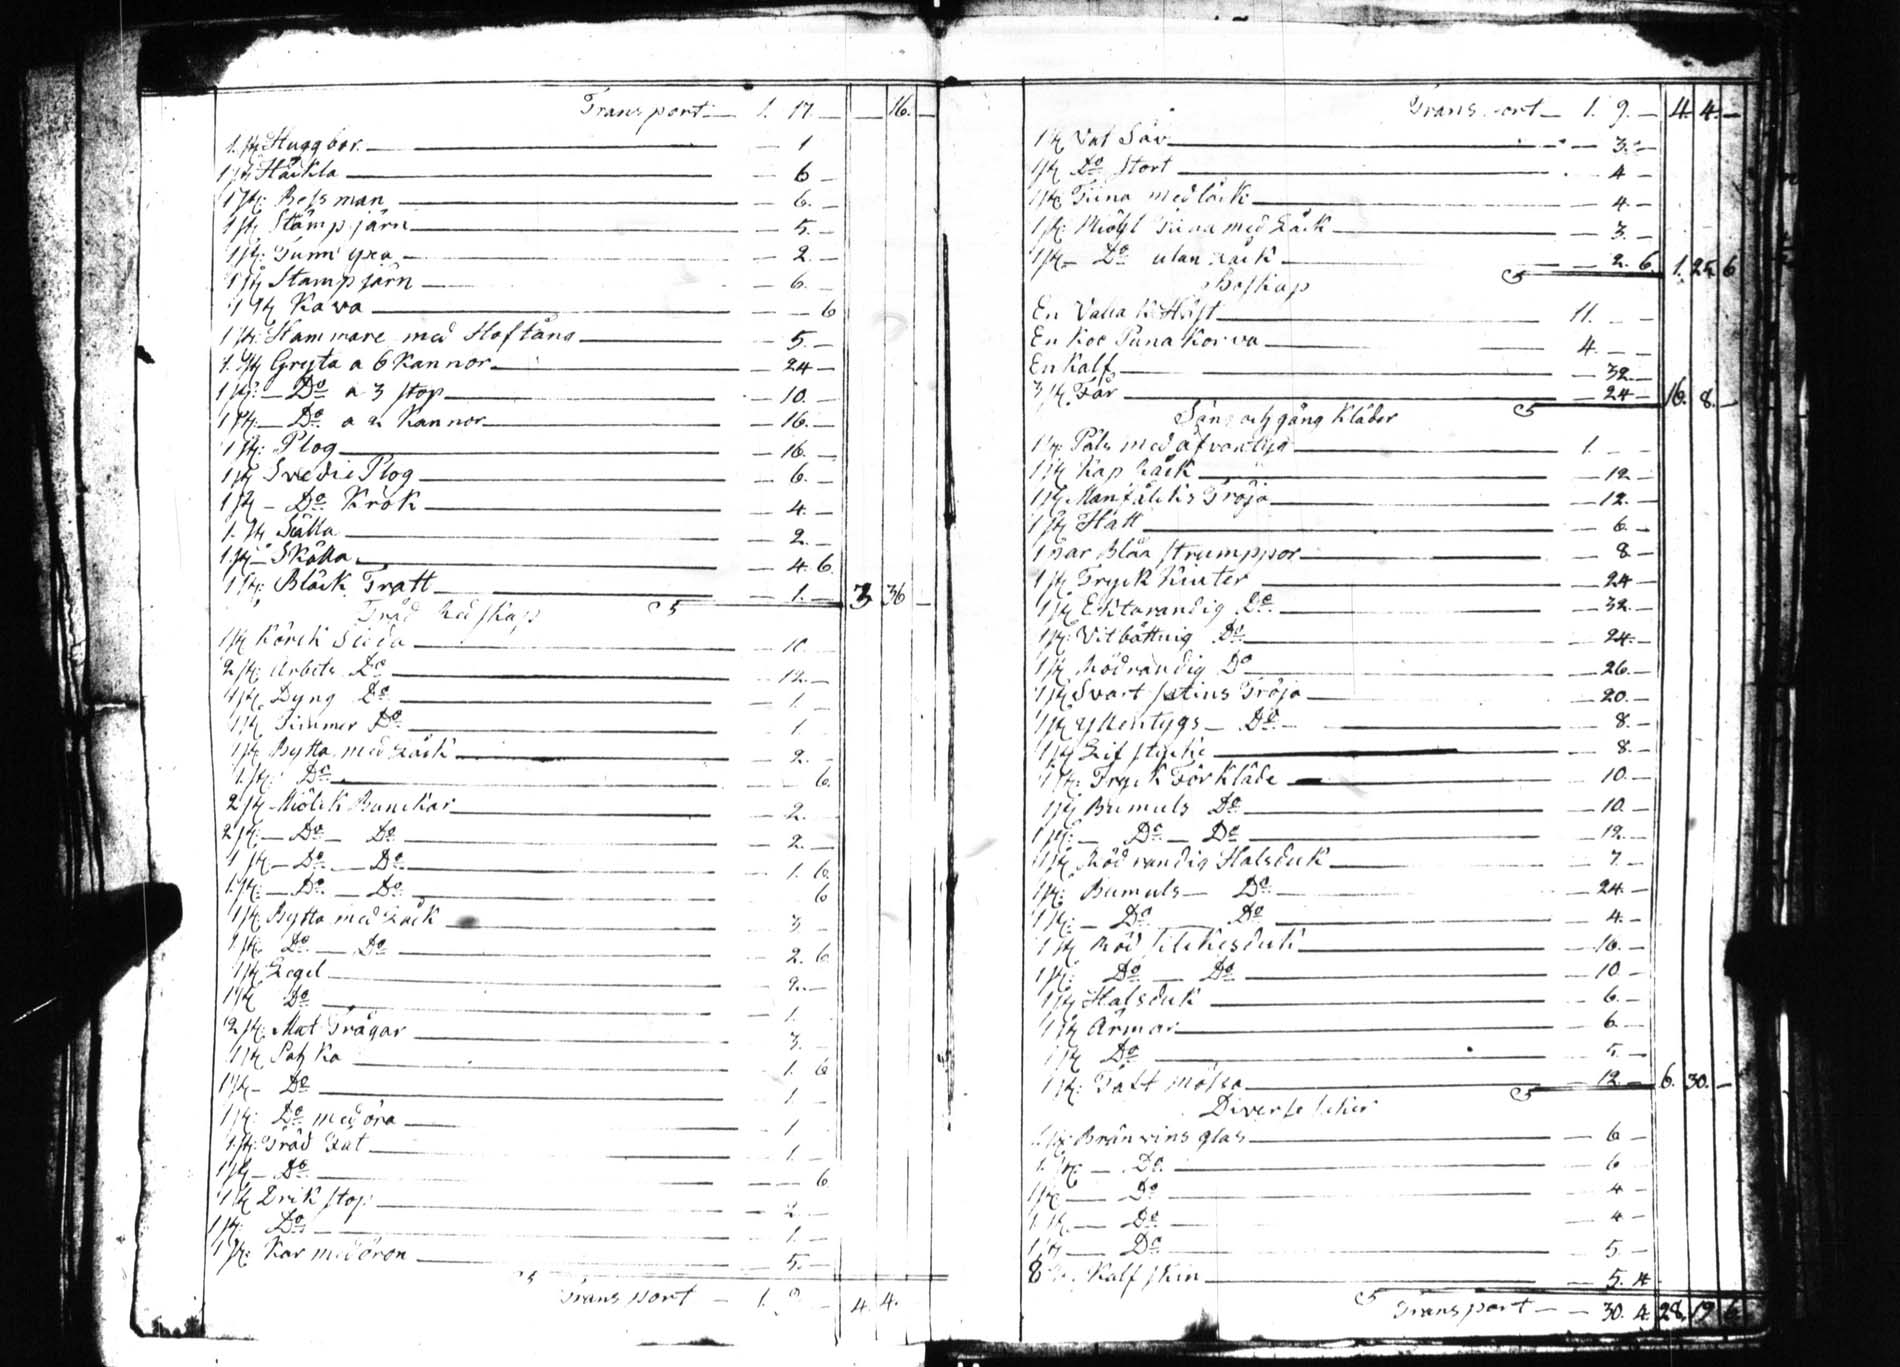 Transport — 1. 17. — — 16. —
1. st Huggbor — 1
1 st Häckla — 6 —
1 st: Bessman — 6. —
1 st Stämpjärn — 5. —
1 st: Tunn yxa — 2. —
1 st Stampjärn — 6. —
1 st Kava — — 6
1 st: Hammare med Hoftång — 5. —
1. st Gryta a 6 Kannor — 24 —
1 st: — Do a 3 stop — 10. —
1 st: — Do a 2 Kannor — 16. —
1 st: Plog — 16. —
1 st Svedie Plog — 6. —
1 st — Do Krok — 4. —
1. st Sålla — 2. —
1 st — Skålla — 4. 6.
1 st: Bläck Tratt — 1. — 3 36 —
Träd Redskap
1 st Körck Släda — 10. —
2 st: Arbets Do — 12. —
1 st. Dyng Do — 1.
1 st. Timmer Do — 1
1 st Bytta med Låck — 2. —
1. st: Do — — 6.
2 st Miölck Bunckar — 2. —
2 st: — Do — Do — 2. —
1 st — Do — Do — 1. 6
1. st: — Do — Do — 6
1 st: Bytta med Låck — 3 —
1. st: Do — Do — 2. 6
1 st Legel — 2. —
1 st Do — 1.
2 st: Mat Trågar — 3. —
1 st Satz Ka — 1. 6
1 st — Do — 1 —
1 st: Do med öra — 1
1. st: Träd Fat — 1. —
1 st — Do — — 6
1 st Drik stop — 2. —
1 st: Do — 1. —
1 st: Kar med öron — 5. —
Transport — 1. 9 — 4. 4. —
Transport — 1. 9. — 4. 4. —
1 st Vat Såv — 3. —
1 st Do Stort — 4 —
1 st: Tiina med låck — 4 —
1 st: Miöhl Tiina med Låck — 3. —
1 st — Do utan Låck — 2. 6. 1. 25. 6
Boskap
En Vallack Häst — 11. — —
En Koe Puna Korva — 4. — —
En Kalf — 32. —
3 st. Får — 24 — 16. 8. —
Säng och gång Kläder
1 st: Päls med åfvantyg — 1. — —
1 st Kap Råck — 12 —
1 st Manfålcks Tröja — 12. —
1 st Hatt — 6. —
1 par Blåa strumppor — 8 —
1 st Tryck Kiurter — 24 —
1 st Ecktarandig Do — 32. —
1 st: Vitbåttnig Do — 24. —
1 st Rödrandig Do — 26. —
1 st Svart satins Tröja — 20. —
1 st Yllentygs — Do — 8. —
1 st Lif stycke — 8. —
1 st: Tryck Förkläde — 10. —
1 st Bumuls Do — 10. —
1 st: — Do — Do — 12. —
1 st Röd randig Halsduk — 7. —
1 st: Bumuls — Do — 24. —
1 st: — Do — Do — 4. —
1 st Röd silckesduk — 16. —
1 st: Do — Do — 10 —
1 st Halsduk — 6. —
1 st Ärmar — 6. —
1 st Do — 5. —
1 st: Taft mössa — 12. — 6. 30. —
Diverse saker
1 st: Bränvins glas — 6 —
1. st: — Do — 6 —
1 st — Do — 4 —
1 st — Do — 4 —
1 st — Do — 5. —
8 st. Kalfskin — 5. 4
Transport — — 30. 4. 28. 19. 6